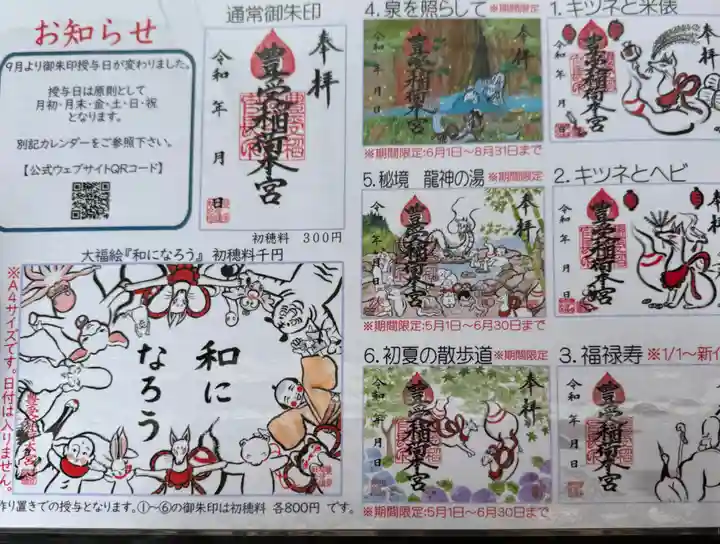 お知らせ
9月より御朱印授与日が変わりました。
授与日は原則として
月初・月末・金・土・日・祝
となります。
別記カレンダーをご参照下さい。
【公式ウェブサイトQRコード】
通常御朱印
奉拝
豊受稲荷本宮
令和 年 月 日
初穂料 300円
大福絵『和になろう』 初穂料千円
※A4サイズです。日付は入りません。
和に
なろう
豊受稲荷本宮
作り置きでの授与となります。①〜⑥の御朱印は初穂料 各800円 です。
4. 泉を照らして※期間限定
奉拝
豊受稲荷本宮
令和 年 月 日
※期間限定:6月1日〜8月31日まで
5. 秘境 龍神の湯 ※期間限定
奉拝
豊受稲荷本宮
令和 年 月 日
※期間限定:5月1日〜6月30日まで
6. 初夏の散歩道※期間限定
奉拝
豊受稲荷本宮
令和 年 月 日
※期間限定:5月1日〜6月30日まで
1. キツネと米俵
奉拝
豊受稲荷本宮
令和 年 月 日
2. キツネとヘビ
奉拝
豊受稲荷本宮
令和 年 月 日
3. 福禄寿 ※1/1〜新
豊受稲荷本宮
令和 年 月 日